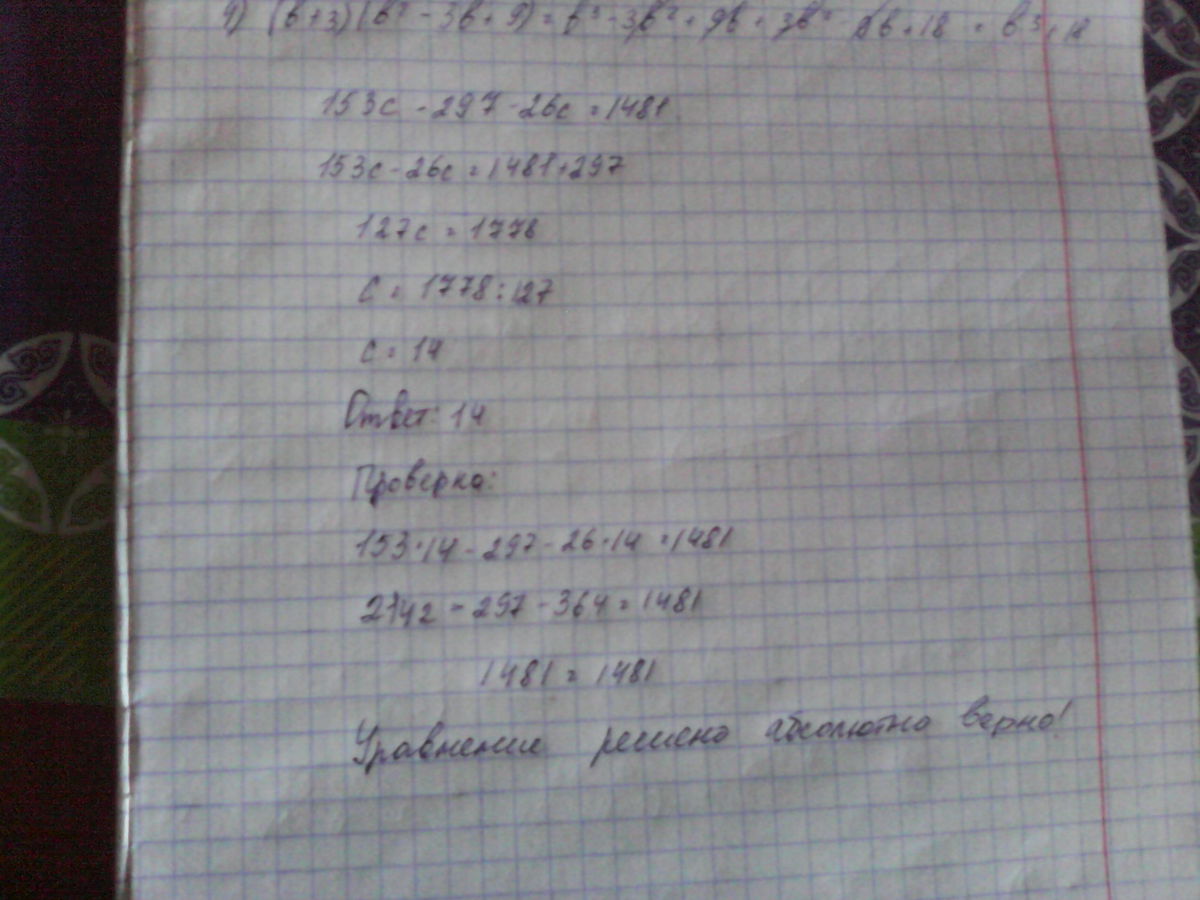 1) (в+3)(в² - 3в + 9) = в³ - 3в² + 9в + 3в² - 9в + 18 = в³ + 18
153с - 297 - 26с = 1481
153с - 26с = 1481 + 297
127с = 1778
с = 1778 : 127
с = 14
Ответ: 14
Проверка:
153·14 - 297 - 26·14 = 1481
2142 - 297 - 364 = 1481
1481 = 1481
Уравнение решено абсолютно верно!